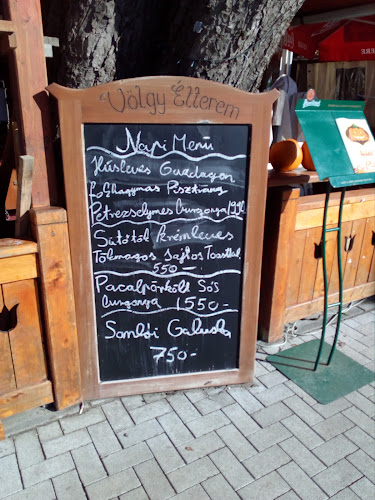 Völgy Étterem
Napi Menü
Húsleves Gazdagon
Foghagymás Pisztráng
Petrezselymes burgonya 1990
Sütőtök krémleves
Tökmagos Sajtos Toasttal
550-
Pacalpörkölt Sós
burgonya 1550-
Somlói Galuska
750-